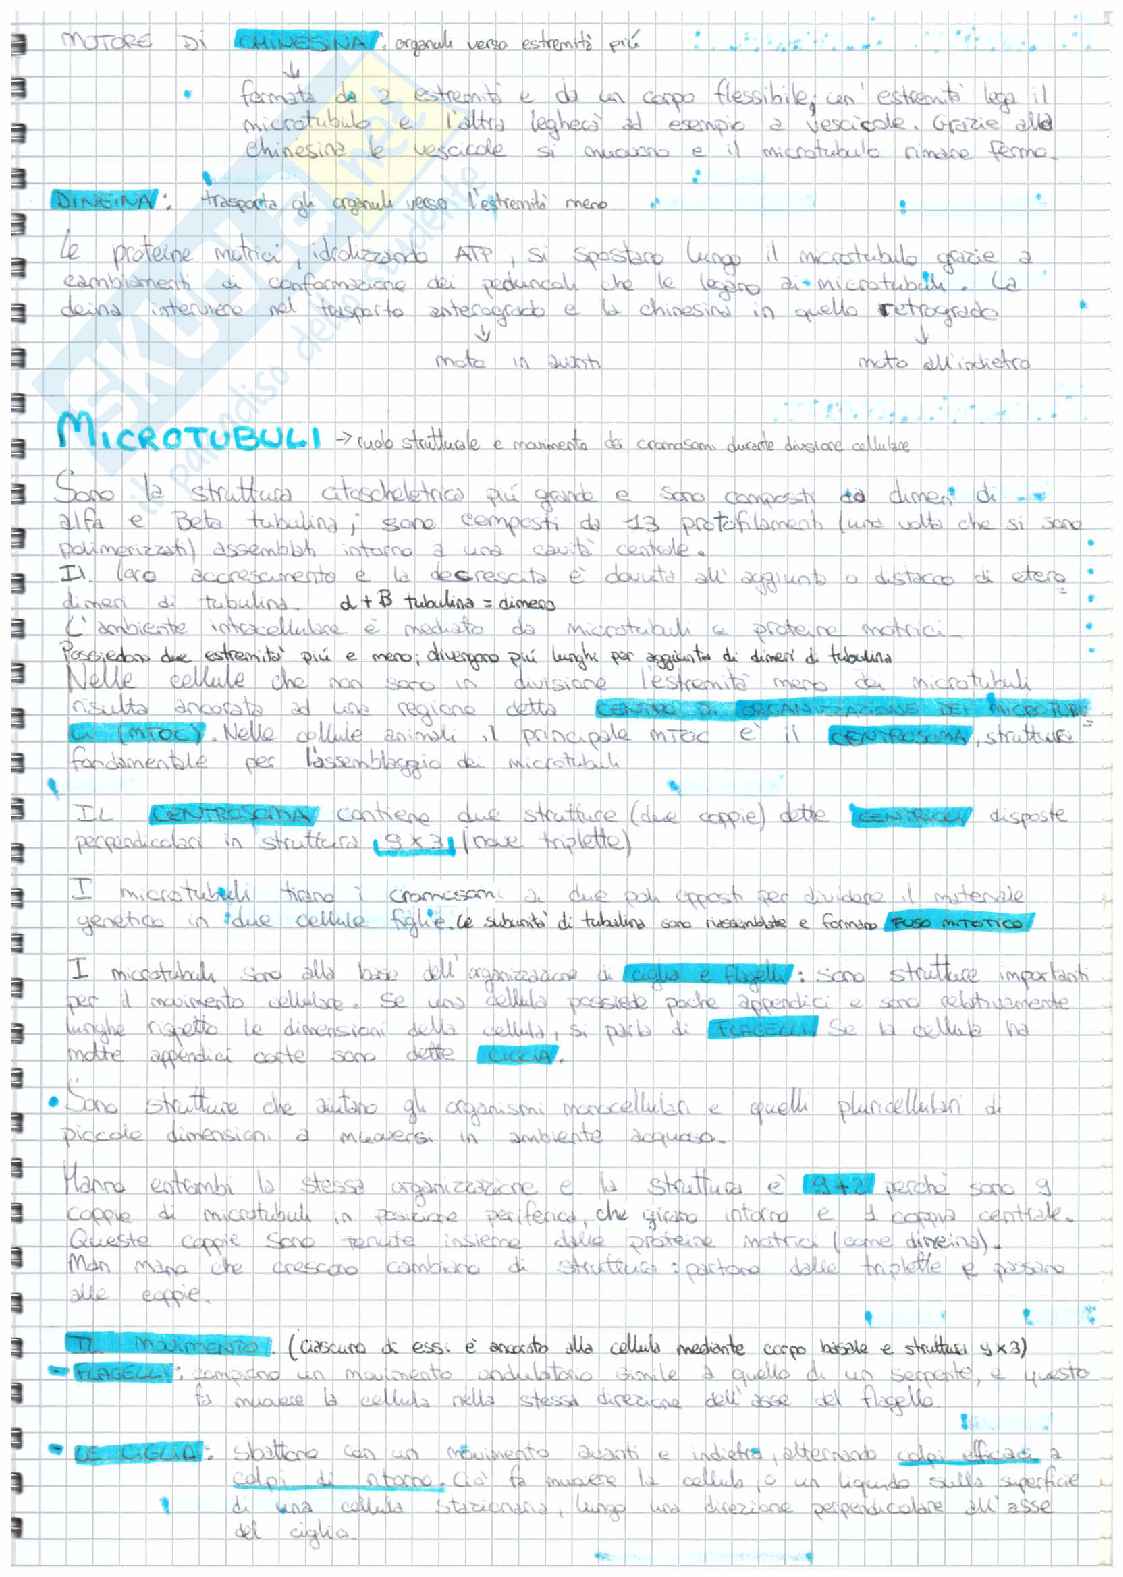 MOTORE DI CHINESINA: organuli verso estremità più
↓
• formata da 2 estremità e da un corpo flessibile; un'estremità lega il
microtubulo e l'altra legherà ad esempio a vescicole. Grazie alla
chinesina le vescicole si muovono e il microtubulo rimane fermo.
DINEINA: trasporta gli organuli verso l'estremità meno
Le proteine motrici, idrolizzando ATP, si spostano lungo il microtubulo grazie a
cambiamenti di conformazione dei peduncoli che le legano ai microtubuli. La
deina interviene nel trasporto anterogrado e la chinesina in quello retrogrado
↓ ↓
moto in avanti moto all'indietro
MICROTUBULI → ruolo strutturale e movimento dei cromosomi durante divisione cellulare
Sono la struttura citoscheletrica più grande e sono composti da dimeri di
alfa e Beta tubulina; sono composti da 13 protofilamenti (una volta che si sono
polimerizzati) assemblati intorno a una cavità centrale.
Il loro accrescimento e la decrescita è dovuta all'aggiunta o distacco di etero
dimeri di tubulina. α + B tubulina = dimero
L'ambiente intracellulare è mediato da microtubuli e proteine motrici.
Possiedono due estremità più e meno; divengono più lunghi per aggiunta di dimeri di tubulina
Nelle cellule che non sono in divisione l'estremità meno dei microtubuli
risulta ancorata ad una regione detta CENTRO DI ORGANIZZAZIONE DEI MICROTUBU
LI (MTOC). Nelle cellule animali il principale MTOC è il CENTROSOMA, struttura
fondamentale per l'assemblaggio dei microtubuli
IL CENTROSOMA contiene due strutture (due coppie) dette CENTRIOLI disposte
perpendicolari in struttura 9x3 (nove triplette)
I microtubuli tirano i cromosomi a due poli opposti per dividere il materiale
genetico in due cellule figlie. Le subunità di tubulina sono riassemblate e formano FUSO MITOTICO
I microtubuli sono alla base dell'organizzazione di ciglia e flagelli: sono strutture importanti
per il movimento cellulare. Se una cellula possiede poche appendici e sono relativamente
lunghe rispetto le dimensioni della cellula, si parla di FLAGELLI. Se la cellula ha
molte appendici corte sono dette CIGLIA.
• Sono strutture che aiutano gli organismi monocellulari e quelli pluricellulari di
piccole dimensioni a muoversi in ambiente acquoso.
Hanno entrambi la stessa organizzazione e la struttura è 9+2 perché sono 9
coppie di microtubuli in posizione periferica, che girano intorno e 1 coppia centrale.
Queste coppie sono tenute insieme dalle proteine motrici (come dineina).
Man mano che crescono cambiano di struttura: partono dalle triplette e passano
alle coppie.
IL MOVIMENTO. (ciascuno di essi è ancorato alla cellula mediante corpo basale e struttura 9x3)
- FLAGELLI: compiono un movimento ondulatorio simile a quello di un serpente, e questo
fa muovere la cellula nella stessa direzione dell'asse del flagello.
- LE CIGLIA: sbattono con un movimento avanti e indietro, alternando colpi efficaci a
colpi di ritorno. Ciò fa muovere la cellula, o un liquido sulla superficie
di una cellula stazionaria, lungo una direzione perpendicolare all'asse
del ciglio.
SKUOLA.net
il paradiso dello studente